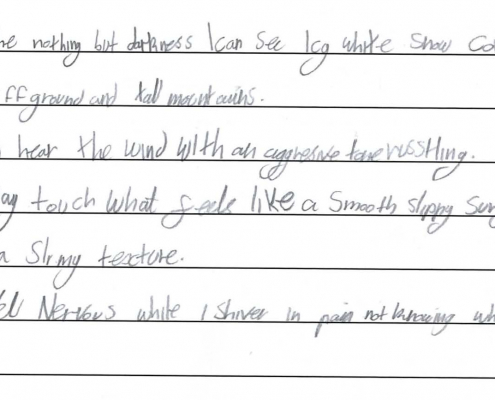 nothing but darkness I can see Icy white snow
ff ground and tall mountains.
hear the wind with an aggresive tone russtling.
touch what feels like a smooth slippy
a Slimy texture.
Nervous while I shiver in pain not knowing